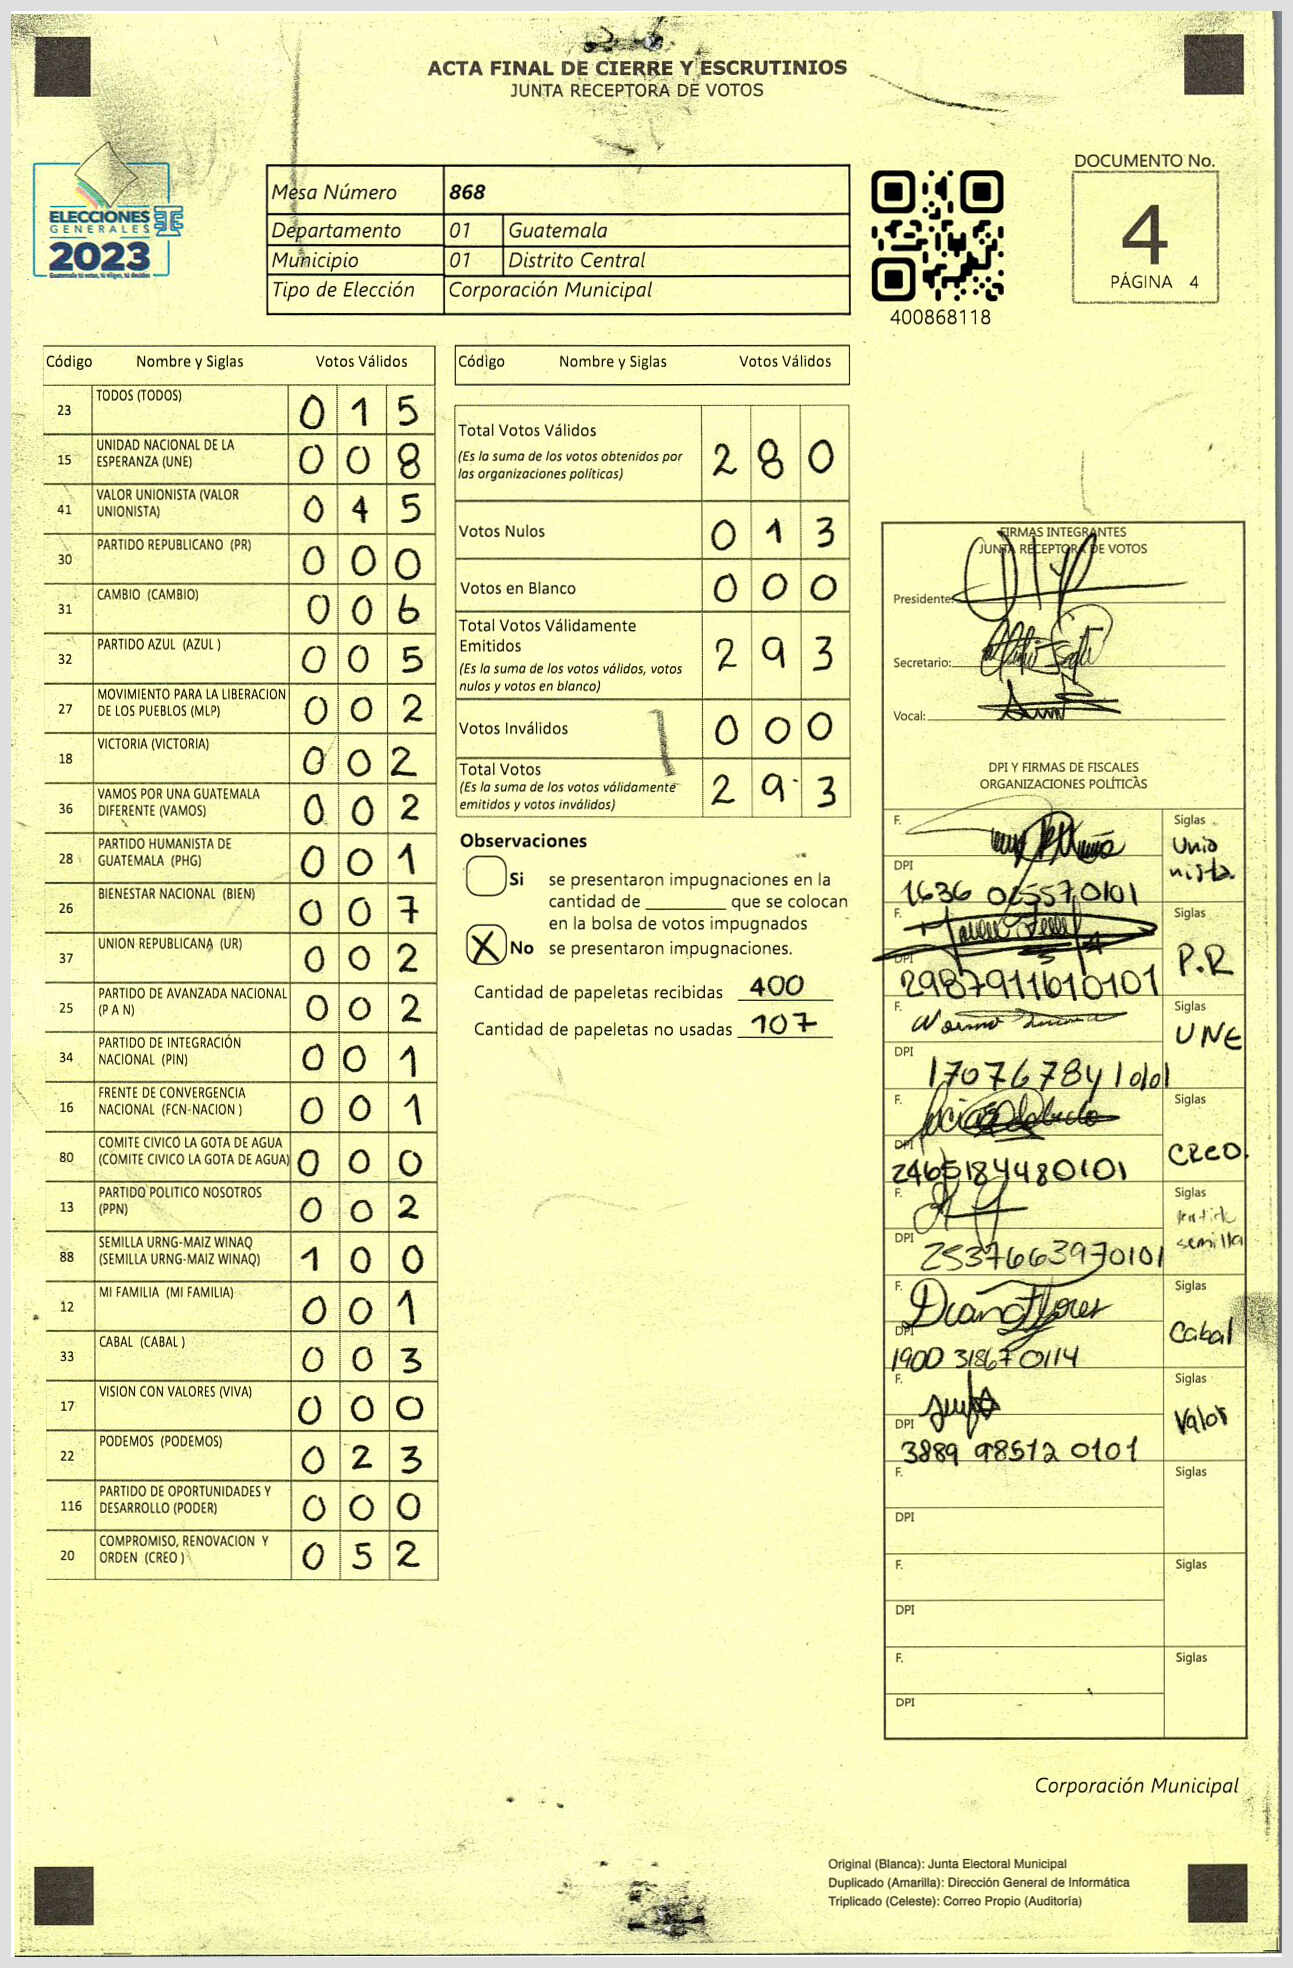 ACTA FINAL DE CIERRE Y ESCRUTINIOS
JUNTA RECEPTORA DE VOTOS
ELECCIONES
GENERALES
2023
Mesa Número 868
Departamento 01 Guatemala
Municipio 01 Distrito Central
Tipo de Elección Corporación Municipal
400868118
DOCUMENTO No.
4
PÁGINA 4
Código Nombre y Siglas Votos Válidos
23 TODOS (TODOS) 0 1 5
15 UNIDAD NACIONAL DE LA ESPERANZA (UNE) 0 0 8
41 VALOR UNIONISTA (VALOR UNIONISTA) 0 4 5
30 PARTIDO REPUBLICANO (PR) 0 0 0
31 CAMBIO (CAMBIO) 0 0 6
32 PARTIDO AZUL (AZUL ) 0 0 5
27 MOVIMIENTO PARA LA LIBERACION DE LOS PUEBLOS (MLP) 0 0 2
18 VICTORIA (VICTORIA) 0 0 2
36 VAMOS POR UNA GUATEMALA DIFERENTE (VAMOS) 0 0 2
28 PARTIDO HUMANISTA DE GUATEMALA (PHG) 0 0 1
26 BIENESTAR NACIONAL (BIEN) 0 0 7
37 UNION REPUBLICANA (UR) 0 0 2
25 PARTIDO DE AVANZADA NACIONAL (P A N) 0 0 2
34 PARTIDO DE INTEGRACIÓN NACIONAL (PIN) 0 0 1
16 FRENTE DE CONVERGENCIA NACIONAL (FCN-NACION ) 0 0 1
80 COMITE CIVICO LA GOTA DE AGUA (COMITE CIVICO LA GOTA DE AGUA) 0 0 0
13 PARTIDO POLITICO NOSOTROS (PPN) 0 0 2
88 SEMILLA URNG-MAIZ WINAQ (SEMILLA URNG-MAIZ WINAQ) 1 0 0
12 MI FAMILIA (MI FAMILIA) 0 0 1
33 CABAL (CABAL ) 0 0 3
17 VISION CON VALORES (VIVA) 0 0 0
22 PODEMOS (PODEMOS) 0 2 3
116 PARTIDO DE OPORTUNIDADES Y DESARROLLO (PODER) 0 0 0
20 COMPROMISO, RENOVACION Y ORDEN (CREO ) 0 5 2
Código Nombre y Siglas Votos Válidos
Total Votos Válidos 2 8 0
(Es la suma de los votos obtenidos por
las organizaciones políticas)
Votos Nulos 0 1 3
Votos en Blanco 0 0 0
Total Votos Válidamente
Emitidos 2 9 3
(Es la suma de los votos válidos, votos
nulos y votos en blanco)
Votos Inválidos 0 0 0
Total Votos 2 9 3
(Es la suma de los votos válidamente
emitidos y votos inválidos)
Observaciones
Si se presentaron impugnaciones en la
cantidad de ________ que se colocan
en la bolsa de votos impugnados
X No se presentaron impugnaciones.
Cantidad de papeletas recibidas 400
Cantidad de papeletas no usadas 107
FIRMAS INTEGRANTES
JUNTA RECEPTORA DE VOTOS
Presidente:
Secretario:
Vocal:
DPI Y FIRMAS DE FISCALES
ORGANIZACIONES POLÍTICAS
F. Siglas
Unio
nista.
DPI
F. Siglas
P.R
DPI 2987911610101
F. Siglas
UNE
DPI 1707678410101
F. Siglas
CREO.
DPI 2465184480101
F. Siglas
semilla
DPI 2537663970101
F. Diana Flores Siglas
Cabal
DPI 1900 31867 0114
F. Siglas
Valor
DPI 3889 98512 0101
F. Siglas
DPI
F. Siglas
DPI
F. Siglas
DPI
Corporación Municipal
Original (Blanca): Junta Electoral Municipal
Duplicado (Amarilla): Dirección General de Informática
Triplicado (Celeste): Correo Propio (Auditoría)